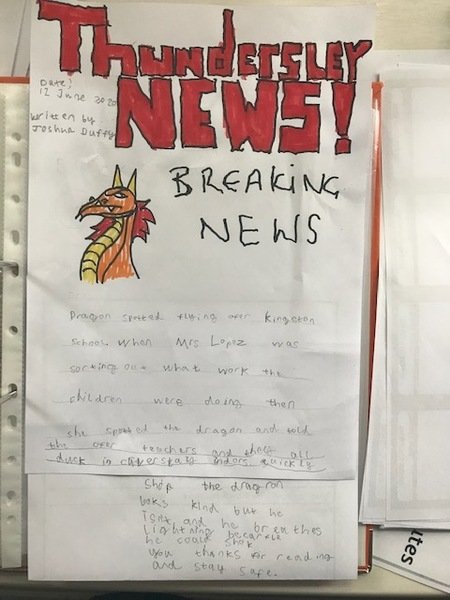 Thundersley
NEWS!
Date!
12 June 2020
written by
Joshua Duffy
BREAKING
NEWS
Dragon spotted flying over Kingston
School. When Mrs Lopez was
sorting out what work the
children were doing then
she spotted the dragon and told
the over teachers and all
duck in indors quickly
the dragron
looks kind but he
isnt and he breathes
Lightning
he could
you thanks for reading
and stay safe.
utes